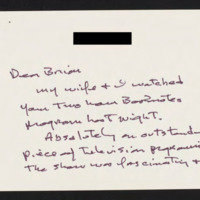 Dear Brian
my wife & I watched
your two hour Booknotes
program last night.
Absolutely an outstandi
piece of television programi
The show was fascinating &